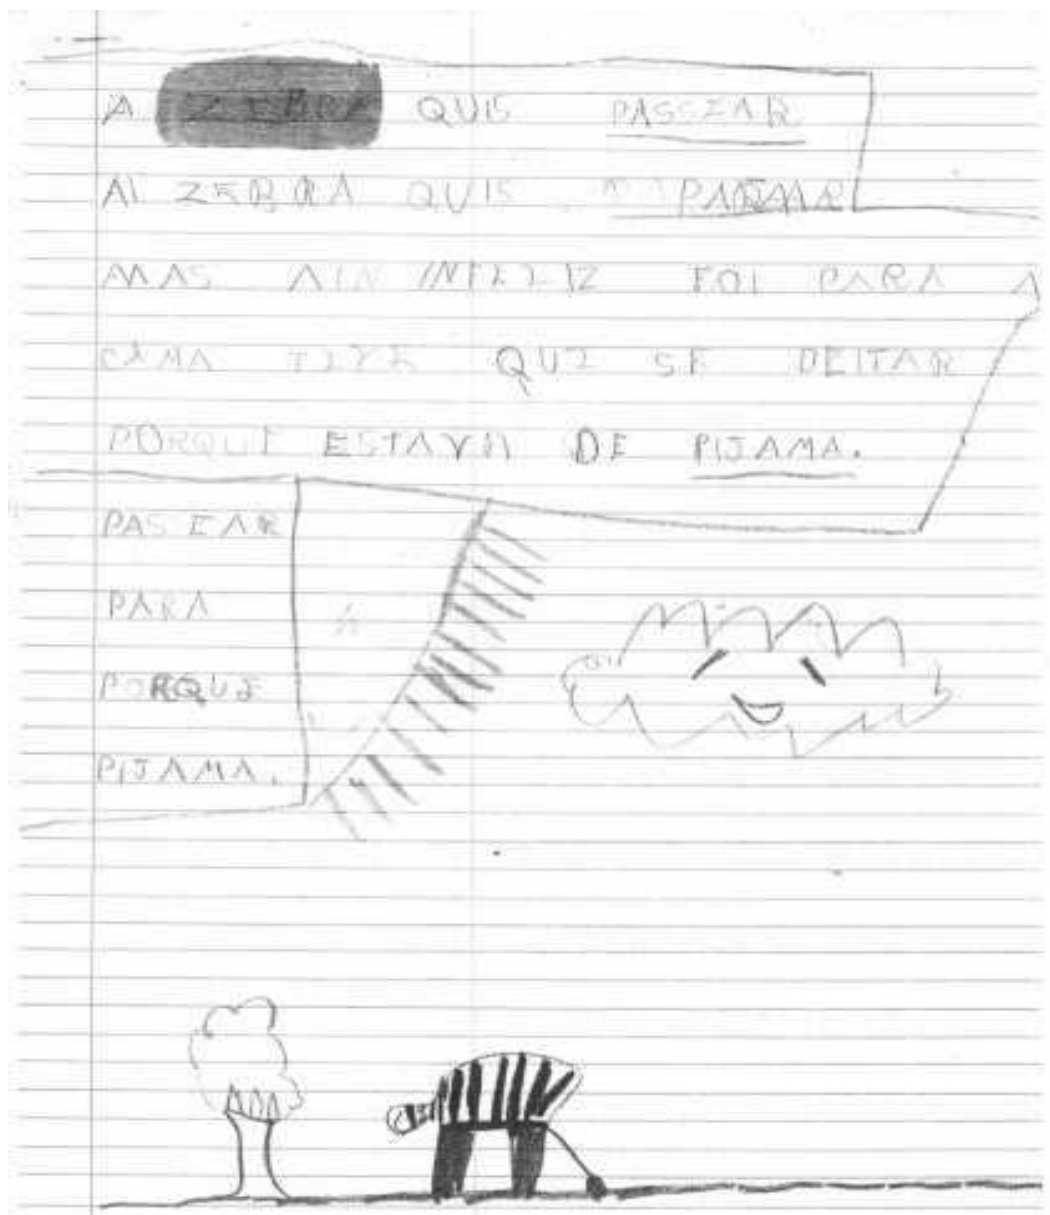 A ZEBRA QUIS PASSEAR
A ZEBRA QUIS PARMAR
MAS A INFELIZ FOI PARA A
CAMA TEVE QUE SE DEITAR
PORQUE ESTAVA DE PIJAMA.
PASEAR
PARA
PORQUE
PIJAMA.